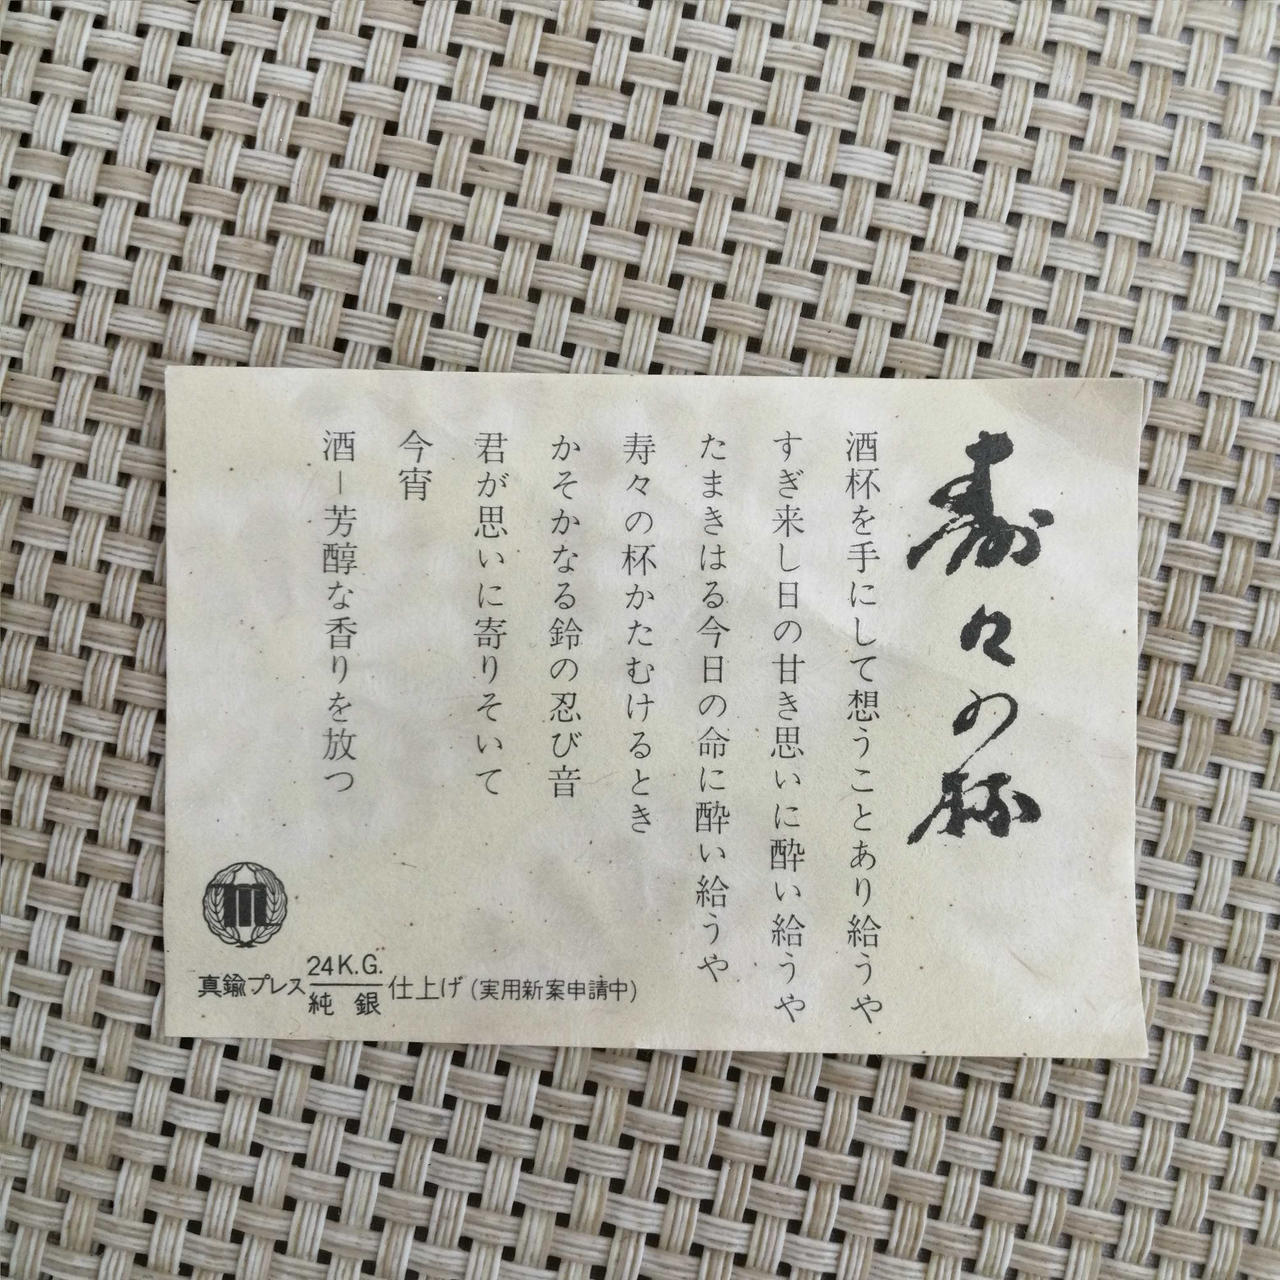 寿々の杯
酒杯を手にして想うことあり給うや
すぎ来し日の甘き思いに酔い給うや
たまきはる今日の命に酔い給うや
寿々の杯かたむけるとき
かそかなる鈴の忍び音
君が思いに寄りそいて
今宵
酒－芳醇な香りを放つ
M
真鍮プレス 24K.G. 仕上げ (実用新案申請中)
純銀